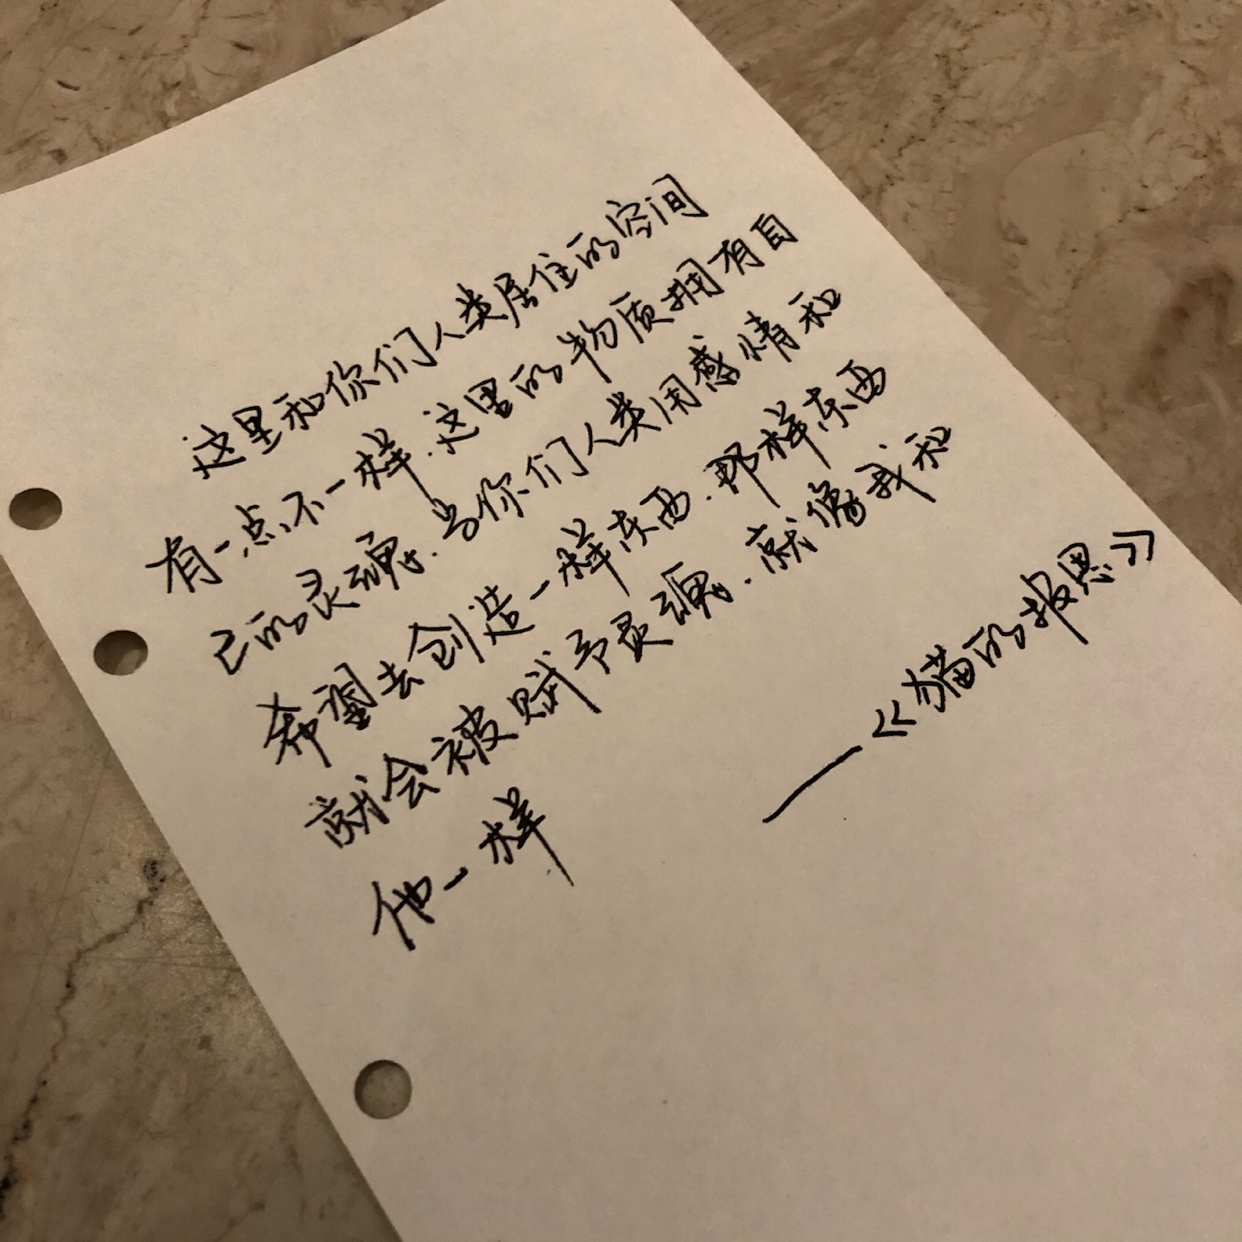 这里和你们人类居住的空间
有一点不一样.这里的物质拥有自
己的灵魂.当你们人类用感情和
希望去创造一样东西.那样东西
就会被赋予灵魂.就像我和
他一样
——《猫的报恩》